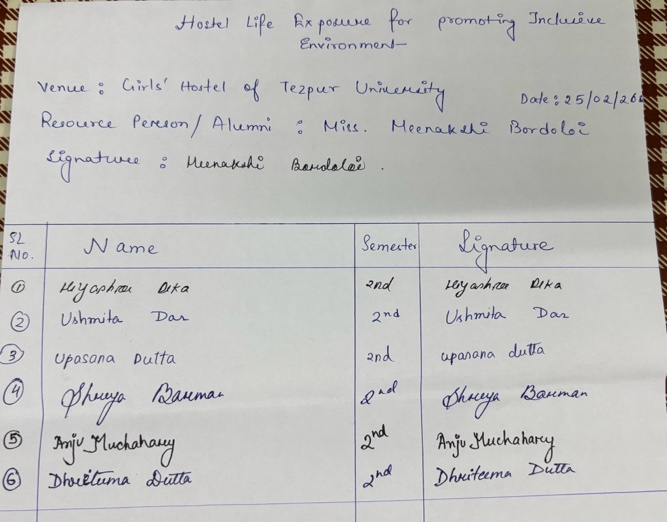 Hostel Life Exposure for promoting Inclusive
Environment
Venue : Girls' Hostel of Tezpur University
Date : 25/02/26
Resource Person / Alumni : Miss. Meenakshi Bordoloi
Signature : Meenakshi Bordoloi .
SL No. Name Semester Signature
① Deka 2nd Deka
② Ushmita Das 2nd Ushmita Das
③ Upasana Dutta 2nd Upasana dutta
④ Shreya Barman 2nd Shreya Barman
⑤ Anju Muchahary 2nd Anju Muchahary
⑥ Dhritima Dutta 2nd Dhriteema Dutta